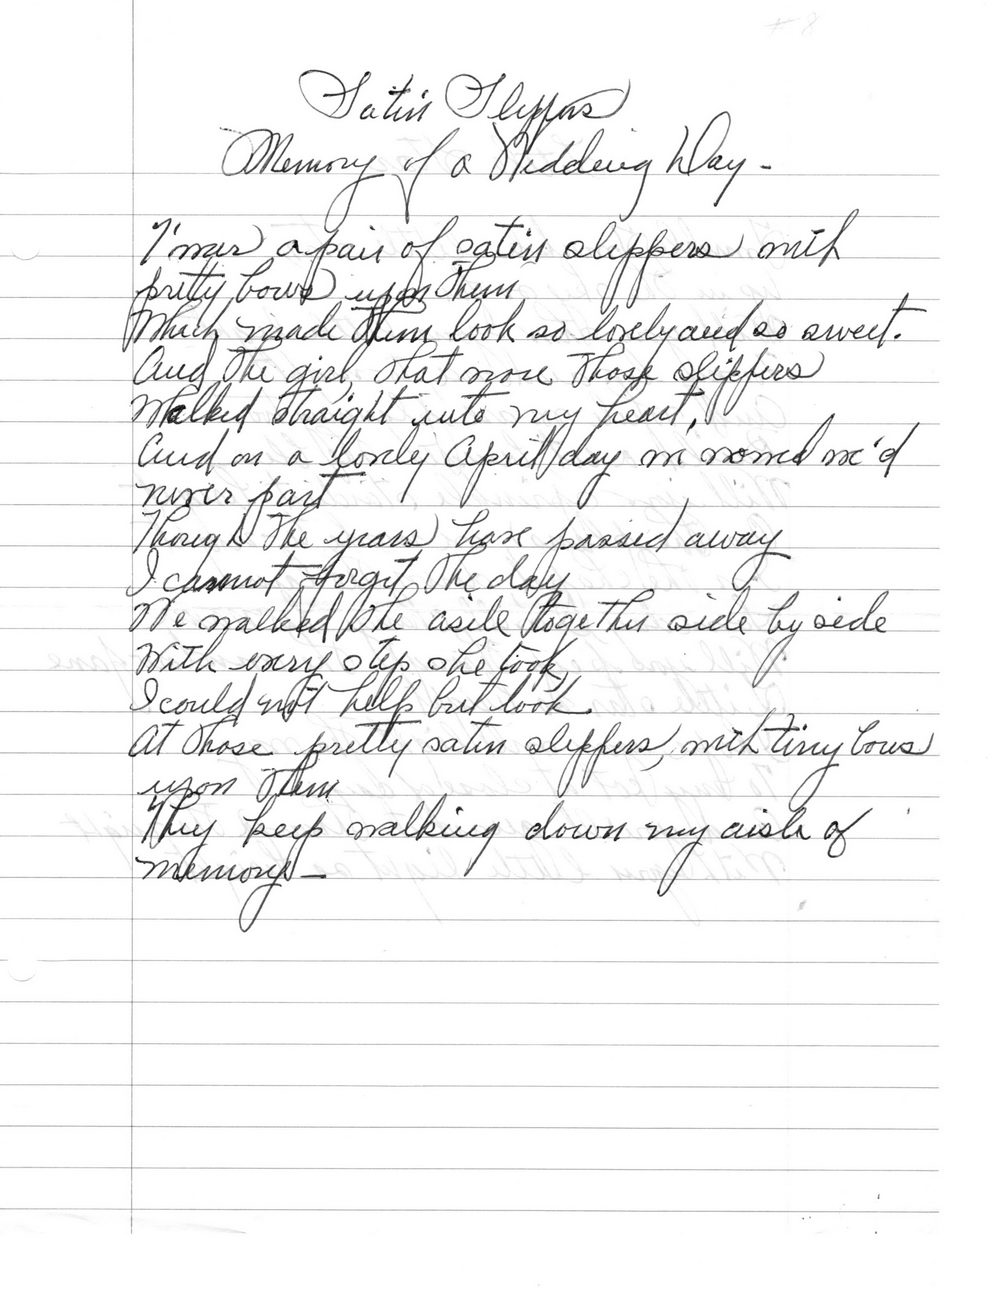 # 8
Satin Slippers
Memory of a Wedding Day -
'Twas a pair of satin slippers with
pretty bows upon them
Which made them look so lovely and so sweet.
And the girl, that wore those slippers
Walked straight into my heart,
And on a lovely April day we vowed we'd
never part
Though the years have passed away
I cannot forget the day
We walked the aisle together side by side
With every step she took,
I could not help but look.
At those pretty satin slippers, with tiny bows
upon them
They keep walking down my aisle of
memory -